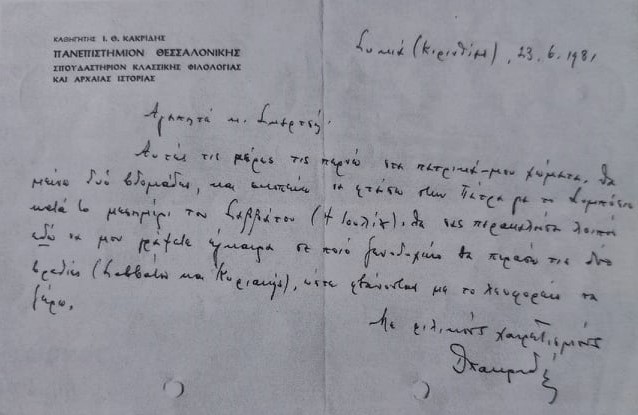 ΚΑΘΗΓΗΤΗΣ Ι. Θ. ΚΑΚΡΙΔΗΣ
ΠΑΝΕΠΙΣΤΗΜΙΟΝ ΘΕΣΣΑΛΟΝΙΚΗΣ
ΣΠΟΥΔΑΣΤΗΡΙΟΝ ΚΛΑΣΣΙΚΗΣ ΦΙΛΟΛΟΓΙΑΣ
ΚΑΙ ΑΡΧΑΙΑΣ ΙΣΤΟΡΙΑΣ
Συκιά (Κορινθίας), 23.6.1981
Αγαπητέ κ. Σκαρτσή,
Αυτές τις μέρες τις περνώ στα πατρικά-μου χώματα. Θα
μείνω δυό βδομάδες, και να φτάσω στην Πάτρα για το Συμπόσιο
κατά το μεσημέρι του Σαββάτου (4 Ιουλίου). Θα σας παρακαλέσω λοιπόν
εδώ να μου γράψετε έγκαιρα σε ποιό ξενοδοχείο θα περάσω τις δύο
βραδιές (Σάββατο και Κυριακή), ώστε φτάνοντας με το λεωφορείο να
ξέρω.
Με φιλικούς χαιρετισμούς